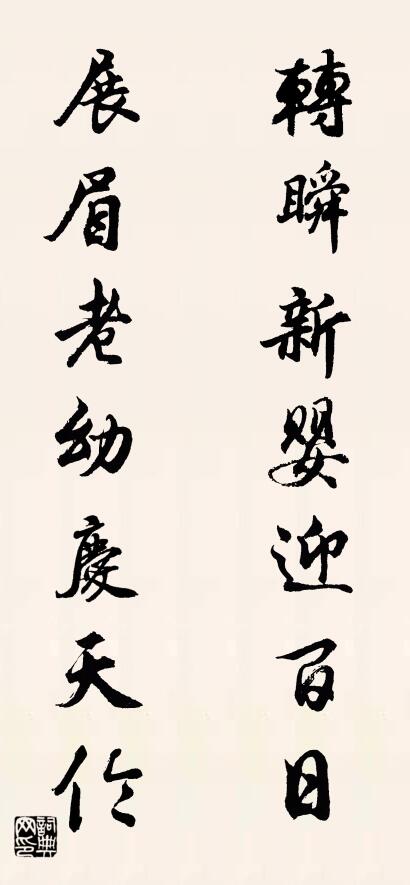 轉瞬新嬰迎百日
展眉老幼慶天伦
詞典网印